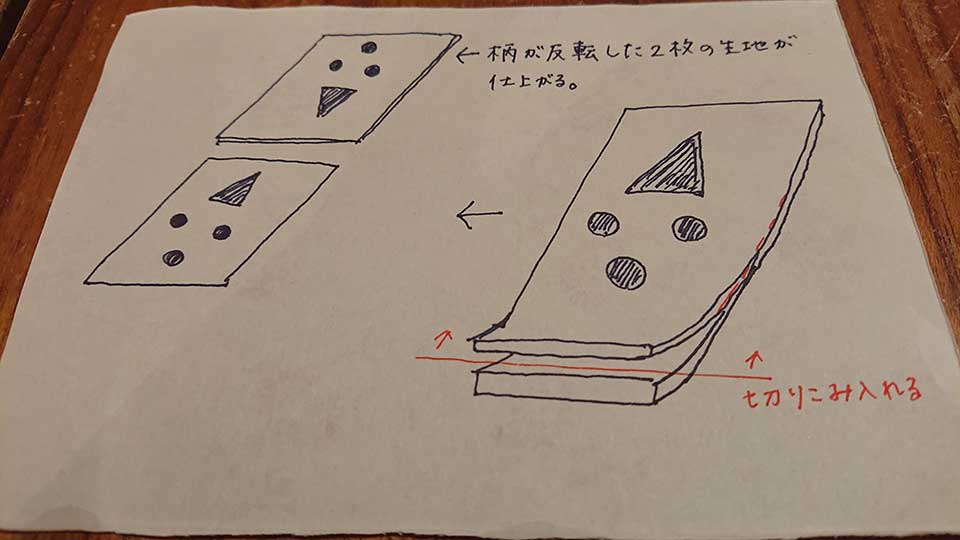 ←柄が反転した2枚の生地が
仕上がる。
切りこみ入れる